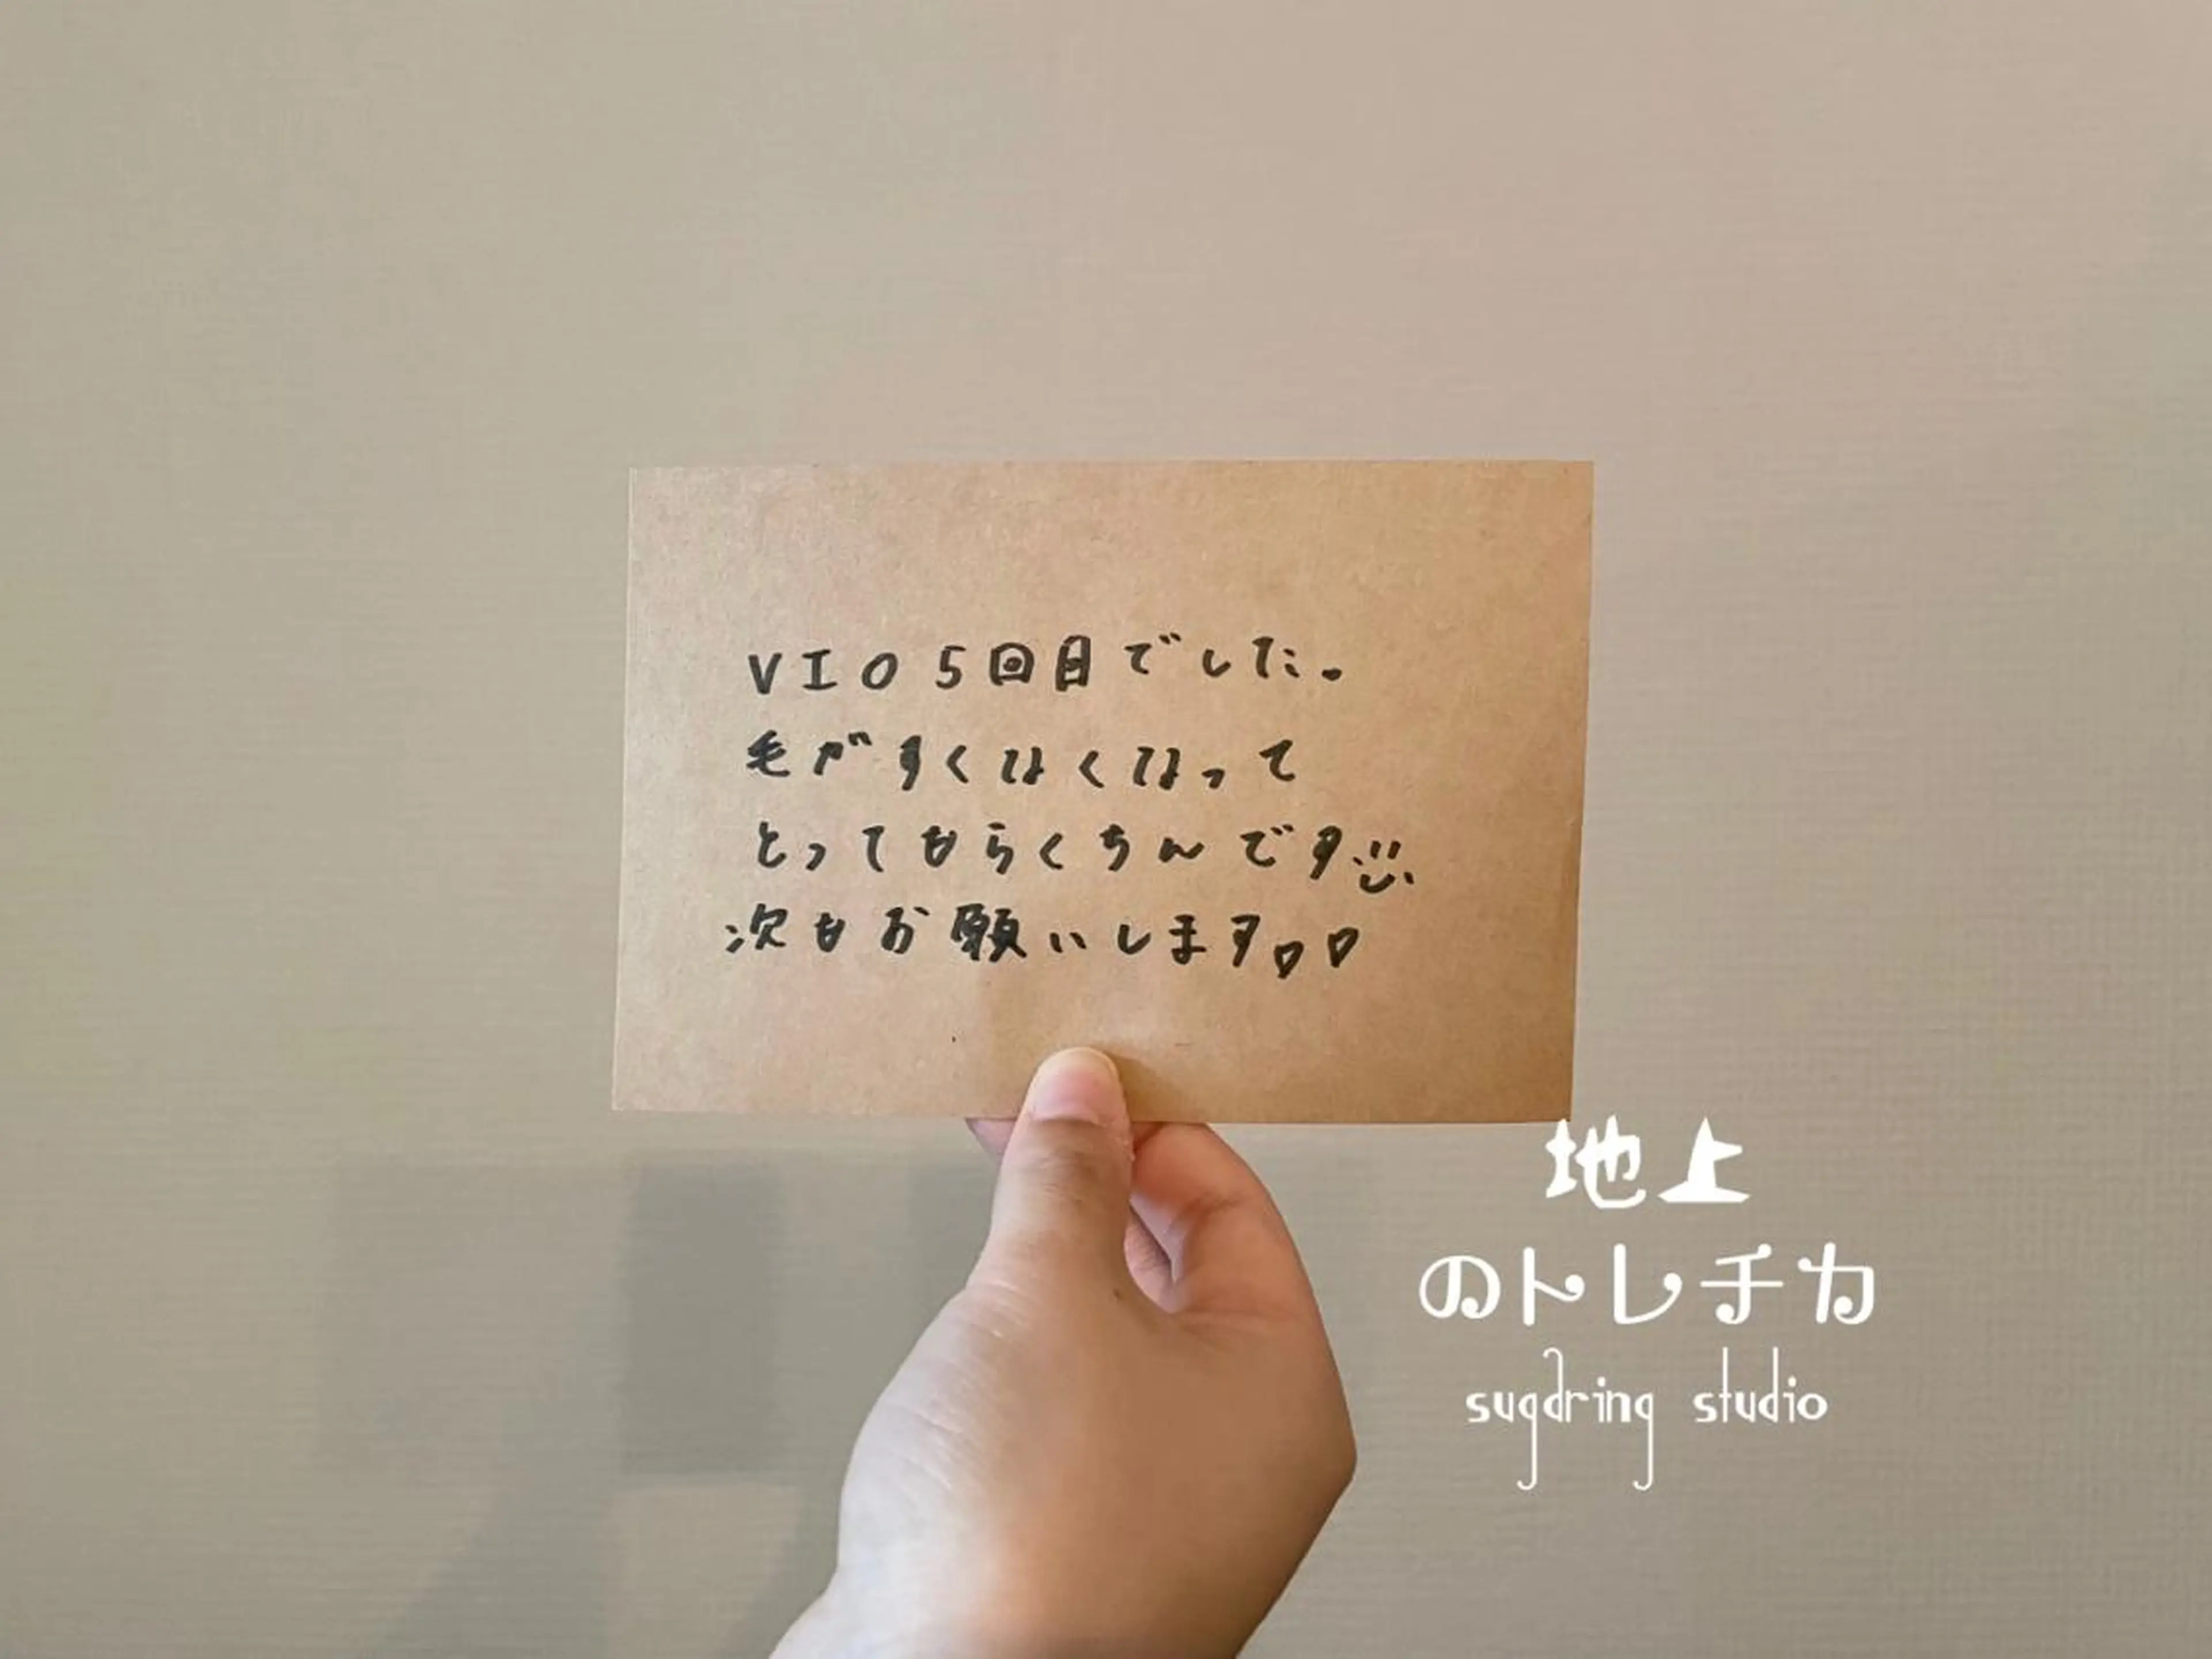 VIO 5回目でした。
毛がすくなくなって
とってもらくちんです
次もお願いします♡♡
地上
のトレチカ
sugaring studio